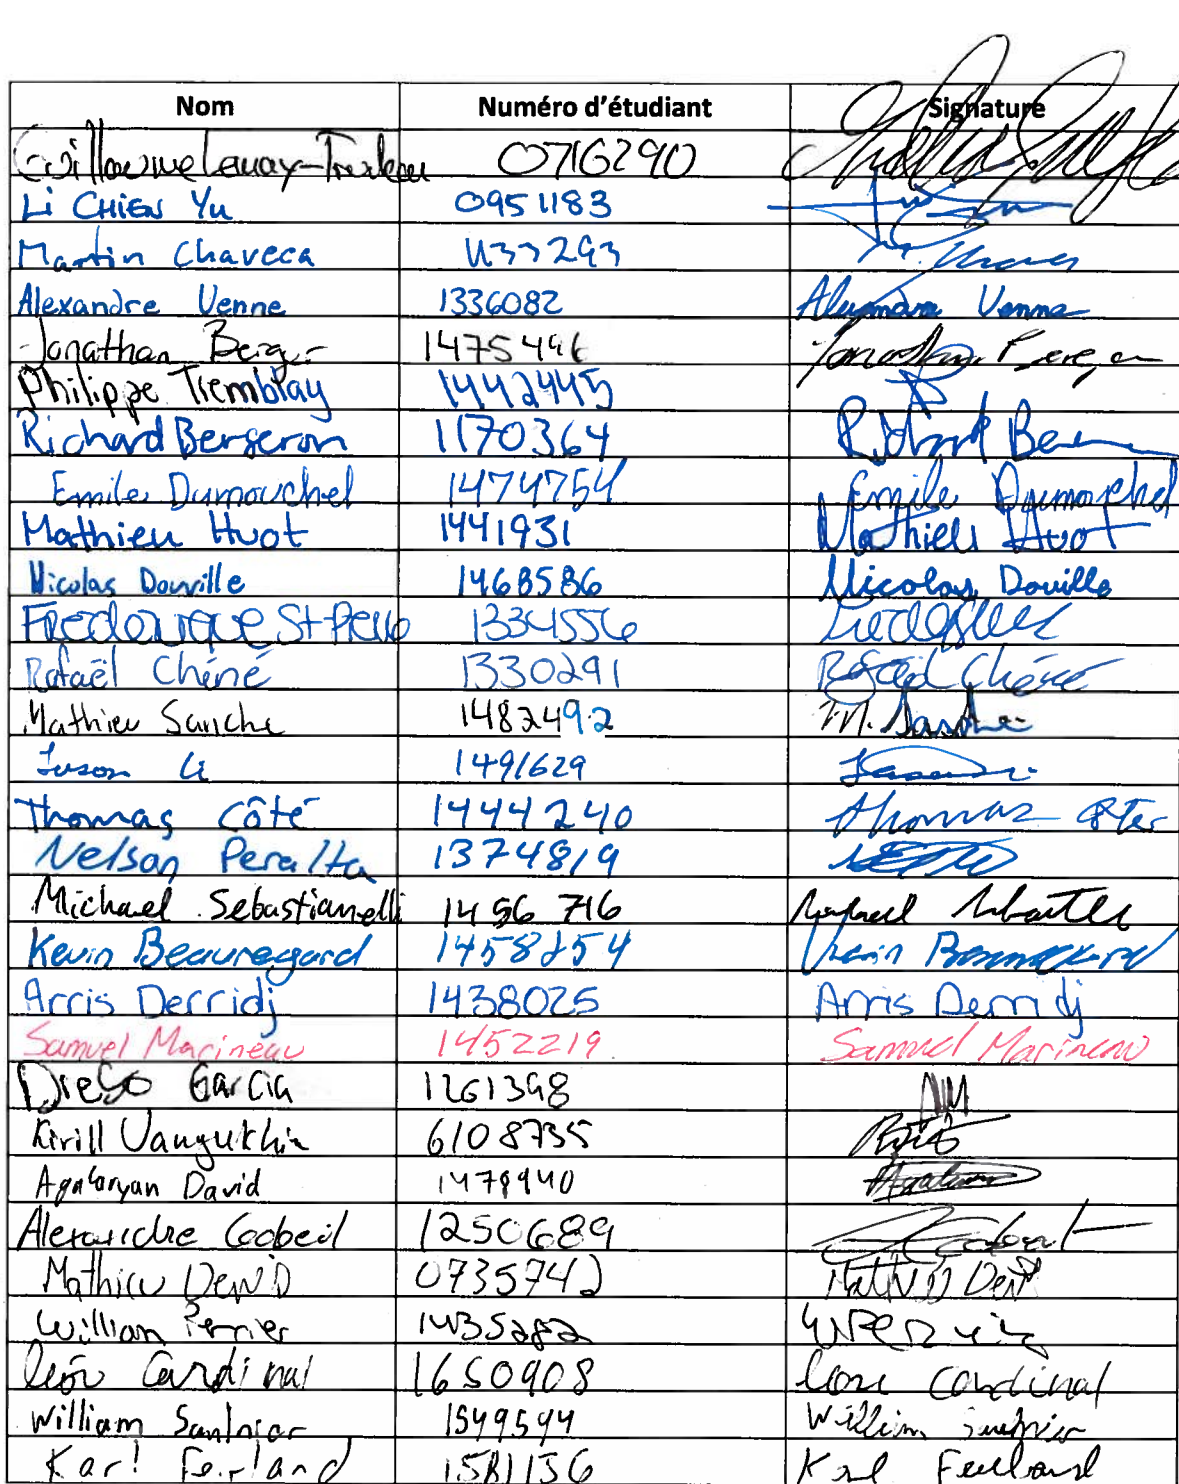 Nom Numéro d'étudiant Signature
Guillaume Lemay- 0716290
Li CHIEN Yu 0951183
Martin Chaveca
Alexandre Venne 1336082 Alexandre Venne
Jonathan Berger 1475496 Jonathan Berger
Philippe Tremblay 1442445
Richard Bergeron 1170364 Richard
Emile Dumouchel 1474754 Emile Dumouchel
Mathieu Huot 1441931 Mathieu Huot
Nicolas Douville 1468586 Nicolas Douville
Frédérique St-Pierre 1334556
Rafaël Chéné 1330291 Rafaël Chéné
Mathieu Sanche 1482492 M. Sanche
Li 1491629
Thomas Côté 1444240 Thomas Côté
Nelson Peralta 1374819
Michael Sebastianelli 1456716
Kevin Beauregard 1458254 Kevin Beauregard
Arris Derridj 1438025 Arris Derridj
Samuel Marineau 1452219 Samuel Marineau
Diego Garcia 1261398
Kirill Vanyukhin 6108735
Agabaryan David 1479940
Alexandre Gobeil 1250689 Gobeil
Mathieu 0735742
William Perrier 1435282
Cardinal 1650908 Cardinal
William Saulnier 1549594 William Saulnier
Karl Ferland 1581136 Karl Ferland